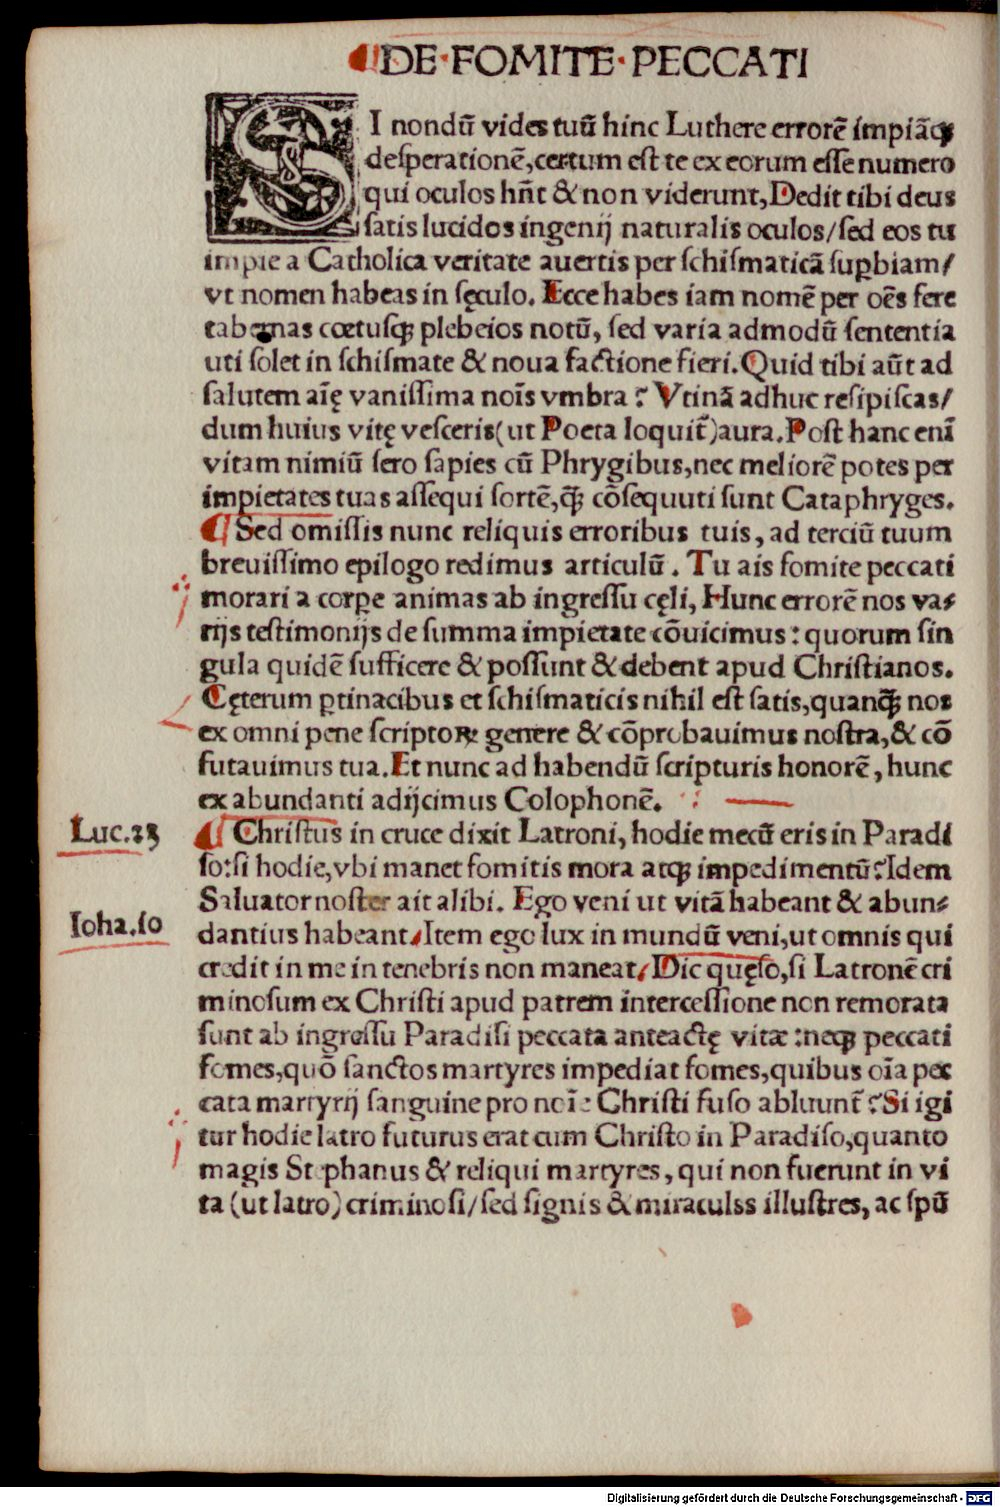 ¶DE·FOMITE·PECCATI
SI nondū vides tuū hinc Luthere errorē impiāqꝫ
desperationē, certum est te ex eorum esse numero
qui oculos hn̄t & non viderunt, Dedit tibi deus
satis lucidos ingenij naturalis oculos/sed eos tu
impie a Catholica veritate auertis per schismaticā suꝑbiam/
vt nomen habeas in sęculo. Ecce habes iam nomē per oēs fere
tabernas cœtusqꝫ plebeios notū, sed varia admodū sententia
uti solet in schismate & noua factione fieri. Quid tibi aūt ad
salutem aīę vanissima noīs vmbra? Vtinā adhuc resipiscas/
dum huius vitę vesceris (ut Poeta loquit̄) aura. Post hanc enī
vitam nimiū sero sapies cū Phrygibus, nec meliorē potes per
impietates tuas assequi sortē, q̄ꝫ cōsequuti sunt Cataphryges.
¶ Sed omissis nunc reliquis erroribus tuis, ad terciū tuum
breuissimo epilogo redimus articulū. Tu ais fomite peccati
morari a corꝑe animas ab ingressu cęli, Hunc errorē nos va-
rijs testimonijs de summa impietate cōuicimus: quorum sin
gula quidē sufficere & possunt & debent apud Christianos.
Cęterum ꝑtinacibus et schismaticis nihil est satis, quanq̄ꝫ nos
ex omni pene scriptoꝝ genere & cōprobauimus nostra, & cō
futauimus tua. Et nunc ad habendū scripturis honorē, hunc
ex abundanti adijcimus Colophonē.
Luc.23
¶ Christus in cruce dixit Latroni, hodie mecū eris in Paradi
so: si hodie, vbi manet fomitis mora atqꝫ impedimentū? Idem
Saluator noster ait alibi. Ego veni ut vitā habeant & abun-
Ioha.10
dantius habeant/ Item ego lux in mundū veni, ut omnis qui
credit in me in tenebris non maneat/ Dic quęso, si Latronē cri
minosum ex Christi apud patrem intercessione non remorata
sunt ab ingressu Paradisi peccata anteactę vitæ: neqꝫ peccati
fomes, quō sanctos martyres impediat fomes, quibus oīa pec
cata martyrij sanguine pro noīe Christi fuso abluunt̄? Si igi
tur hodie latro futurus erat cum Christo in Paradiso, quanto
magis Stephanus & reliqui martyres, qui non fuerunt in vi
ta (ut latro) criminosi/ sed signis & miraculss illustres, ac spū
Digitalisierung gefördert durch die Deutsche Forschungsgemeinschaft - DFG